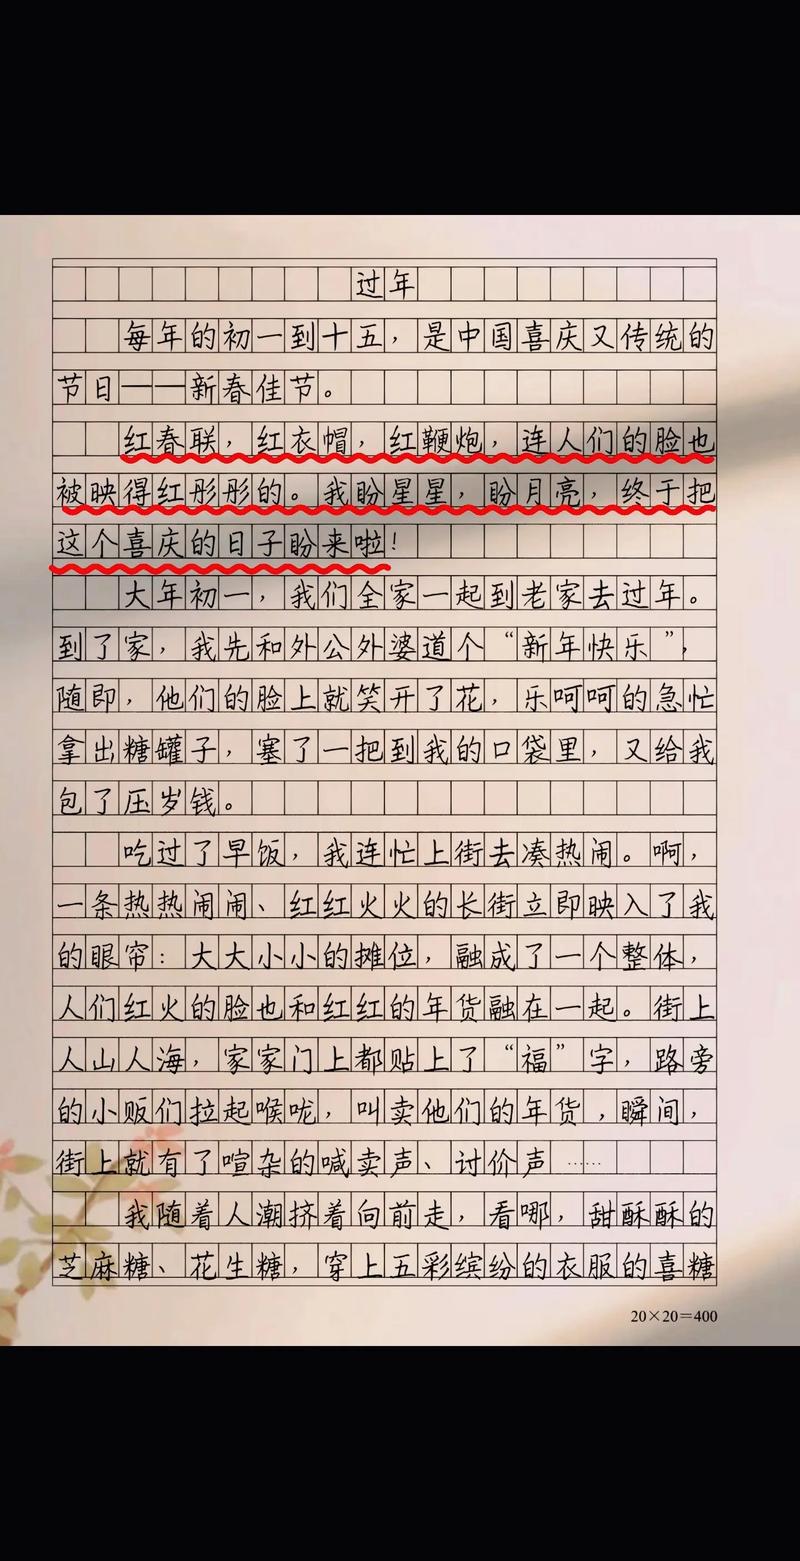 过年
每年的初一到十五，是中国喜庆又传统的
节日——新春佳节。
红春联，红衣帽，红鞭炮，连人们的脸也
被映得红彤彤的。我盼星星，盼月亮，终于把
这个喜庆的日子盼来啦！
大年初一，我们全家一起到老家去过年。
到了家，我先和外公外婆道个“新年快乐”，
随即，他们的脸上就笑开了花，乐呵呵的急忙
拿出糖罐子，塞了一把到我的口袋里，又给我
包了压岁钱。
吃过了早饭，我连忙上街去凑热闹。啊，
一条热热闹闹、红红火火的长街立即映入了我
的眼帘：大大小小的摊位，融成了一个整体，
人们红火的脸也和红红的年货融在一起。街上
人山人海，家家门上都贴上了“福”字，路旁
的小贩们拉起喉咙，叫卖他们的年货，瞬间，
街上就有了喧杂的喊卖声、讨价声……
我随着人潮挤着向前走，看哪，甜酥酥的
芝麻糖、花生糖，穿上五彩缤纷的衣服的喜糖
20×20=400